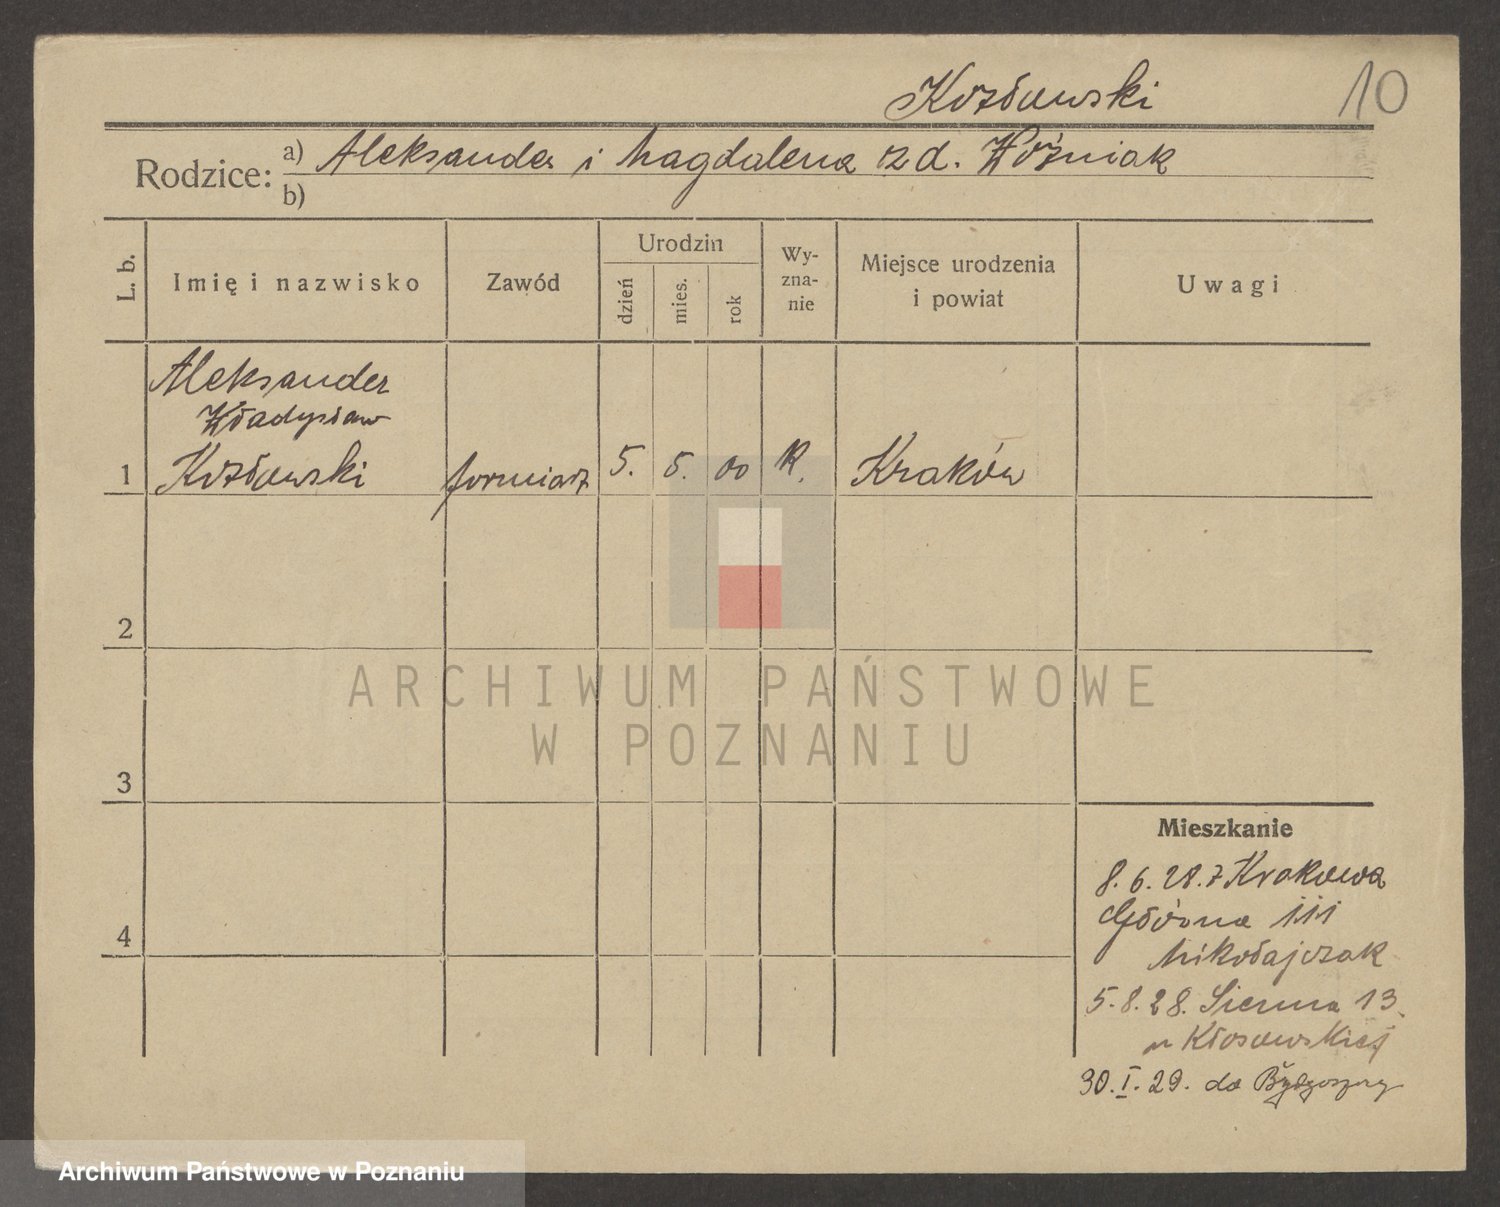 Kozłowski 10
Rodzice: a) Aleksander i Magdalena zd. Woźniak
b)
L. b. Imię i nazwisko Zawód Urodzin dzień mies. rok Wyznanie Miejsce urodzenia i powiat Uwagi
Aleksander
Władysław
1 Kozłowski formiarz 5. 5. 00 R. Kraków
2
ARCHIWUM PAŃSTWOWE
W POZNANIU
3
Mieszkanie
8.6.28. z Krakowa
Główna 111
4
Mikołajczak
5.8.28. Sienna 13.
u Kłosowskiej
30.I.29. do Bydgoszczy
Archiwum Państwowe w Poznaniu